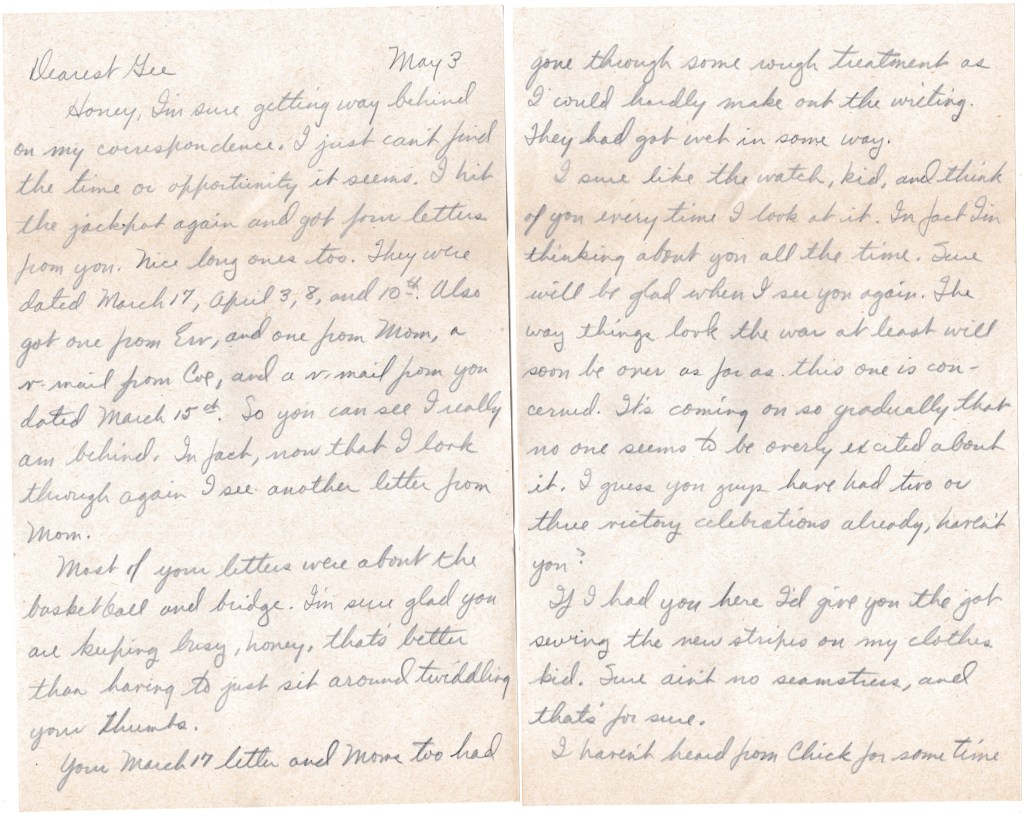 Dearest Gee May 3
Honey, I'm sure getting way behind
on my correspondence. I just can't find
the time or opportunity it seems. I hit
the jackpot again and got four letters
from you. Nice long ones too. They were
dated March 17, April 3, 8, and 10th. Also
got one from Erv, and one from Mom, a
v-mail from Coe, and a v-mail from you
dated March 15th. So you can see I really
am behind. In fact, now that I look
through again I see another letter from
Mom.
Most of your letters were about the
basketball and bridge. I'm sure glad you
are keeping busy, honey, that's better
than having to just sit around twiddling
your thumbs.
Your March 17 letter and Moms too had
gone through some rough treatment as
I could hardly make out the writing.
They had got wet in some way.
I sure like the watch, kid, and think
of you every time I look at it. In fact I'm
thinking about you all the time. Sure
will be glad when I see you again. The
way things look the war at least will
soon be over as far as this one is con-
cerned. It's coming on so gradually that
no one seems to be overly excited about
it. I guess you guys have had two or
three victory celebrations already, haven't
you?
If I had you here I'd give you the job
sewing the new stripes on my clothes
kid. Sure ain't no seamstress, and
that's for sure.
I haven't heard from Chick for some time